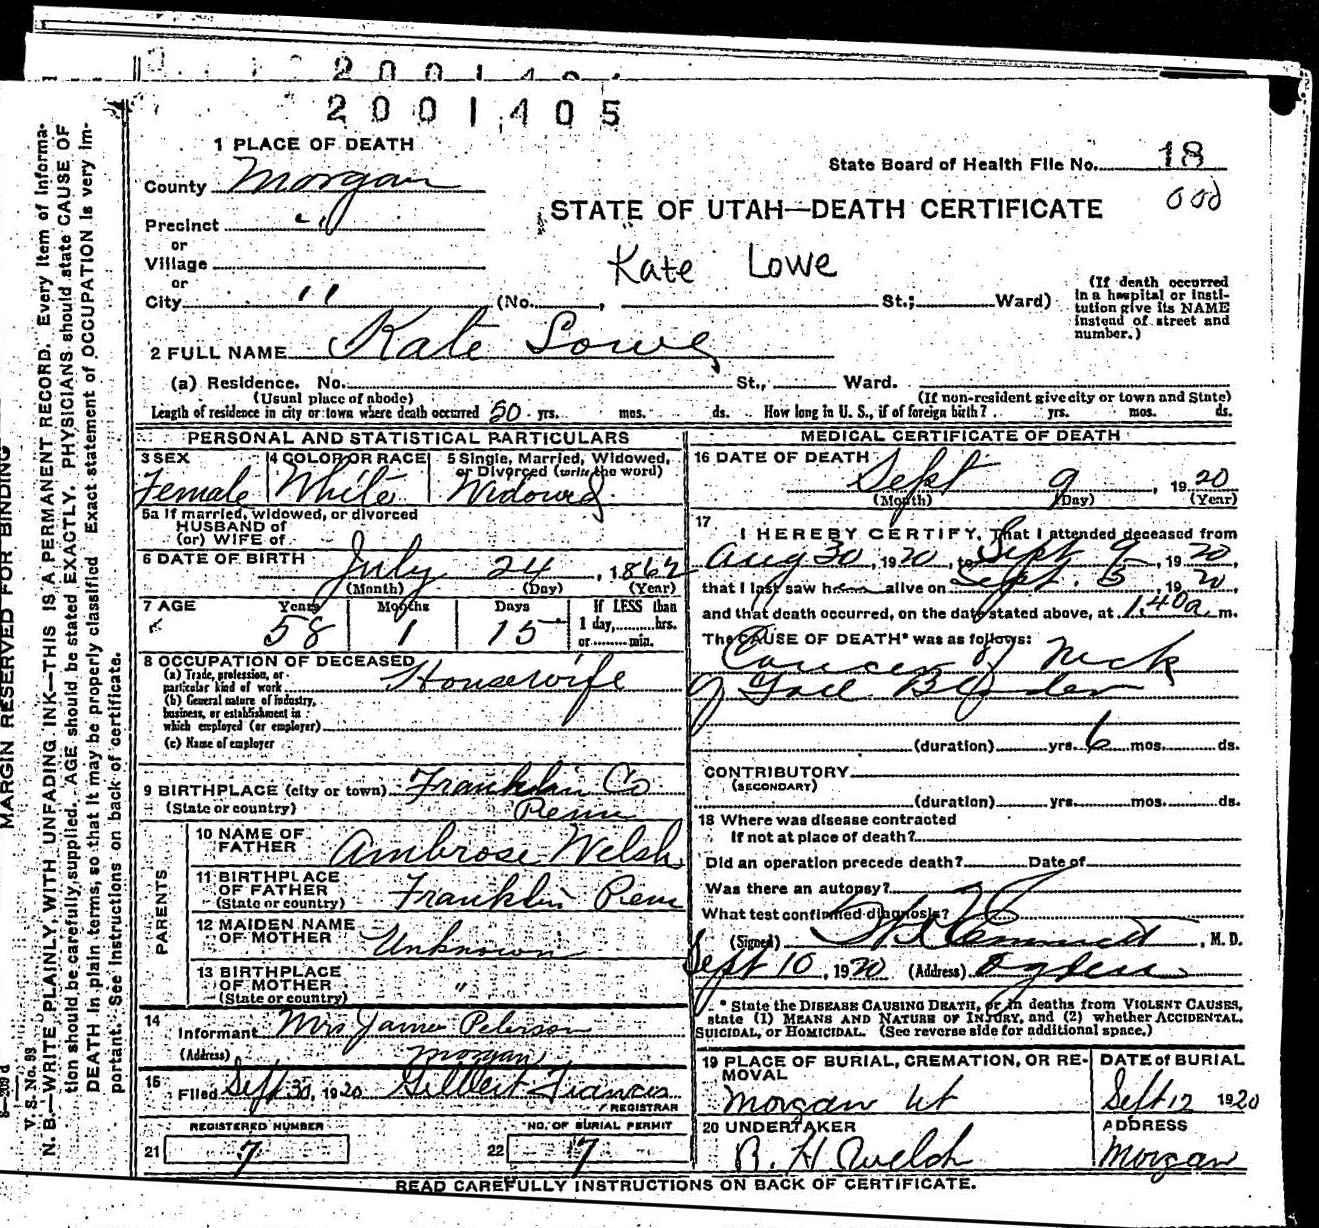 2001405
MARGIN RESERVED FOR BINDING
V. S. No. 93
N. B.—WRITE PLAINLY, WITH UNFADING INK—THIS IS A PERMANENT RECORD. Every item of informa-
tion should be carefully supplied. AGE should be stated EXACTLY. PHYSICIANS should state CAUSE OF
DEATH in plain terms, so that it may be properly classified. Exact statement of OCCUPATION is very im-
portant. See instructions on back of certificate.
1 PLACE OF DEATH
State Board of Health File No. 18
County Morgan
STATE OF UTAH—DEATH CERTIFICATE
Precinct "
or
Village
or
Kate Lowe
City " (No. , St.; Ward)
(If death occurred
in a hospital or insti-
tution give its NAME
instead of street and
number.)
2 FULL NAME Kate Lowe
(a) Residence. No. St., Ward.
(Usual place of abode) (If non-resident give city or town and State)
Length of residence in city or town where death occurred 50 yrs. mos. ds. How long in U. S., if of foreign birth? yrs. mos. ds.
PERSONAL AND STATISTICAL PARTICULARS
3 SEX 4 COLOR OR RACE 5 Single, Married, Widowed,
or Divorced (write the word)
Female White Widowed
5a If married, widowed, or divorced
HUSBAND of
(or) WIFE of
6 DATE OF BIRTH July 24, 1862
(Month) (Day) (Year)
7 AGE Years Months Days If LESS than
1 day, hrs.
58 1 15 or min.
8 OCCUPATION OF DECEASED Housewife
(a) Trade, profession, or
particular kind of work
(b) General nature of industry,
business, or establishment in
which employed (or employer)
(c) Name of employer
9 BIRTHPLACE (city or town) Franklin Co
(State or country) Penn
PARENTS
10 NAME OF
FATHER Ambrose Welsh
11 BIRTHPLACE
OF FATHER Franklin Penn
(State or country)
12 MAIDEN NAME
OF MOTHER Unknown
13 BIRTHPLACE
OF MOTHER "
(State or country)
14
Informant Mrs James Peterson
(Address) Morgan
15
Filed Sept 30, 1920 Gilbert Francis
REGISTRAR
REGISTERED NUMBER NO. OF BURIAL PERMIT
21 7 22 7
MEDICAL CERTIFICATE OF DEATH
16 DATE OF DEATH
Sept 9, 1920
(Month) (Day) (Year)
17
I HEREBY CERTIFY, That I attended deceased from
Aug 30, 1920, to Sept 9, 1920,
that I last saw her alive on Sept. 5 1920,
and that death occurred, on the date stated above, at 1.40 a. m.
The CAUSE OF DEATH* was as follows:
Cancer of Neck
of Gall Bladder
(duration) yrs. 6 mos. ds.
CONTRIBUTORY
(SECONDARY)
(duration) yrs. mos. ds.
18 Where was disease contracted
If not at place of death?
Did an operation precede death? Date of
Was there an autopsy?
What test confirmed diagnosis?
(Signed) , M. D.
Sept 10, 1920 (Address) Ogden
* State the DISEASE CAUSING DEATH, or in deaths from VIOLENT CAUSES,
state (1) MEANS AND NATURE OF INJURY, and (2) whether ACCIDENTAL,
SUICIDAL, or HOMICIDAL. (See reverse side for additional space.)
19 PLACE OF BURIAL, CREMATION, OR RE-
MOVAL
DATE of BURIAL
Morgan Ut Sept 12 1920
20 UNDERTAKER ADDRESS
R. H Welch Morgan
READ CAREFULLY INSTRUCTIONS ON BACK OF CERTIFICATE.